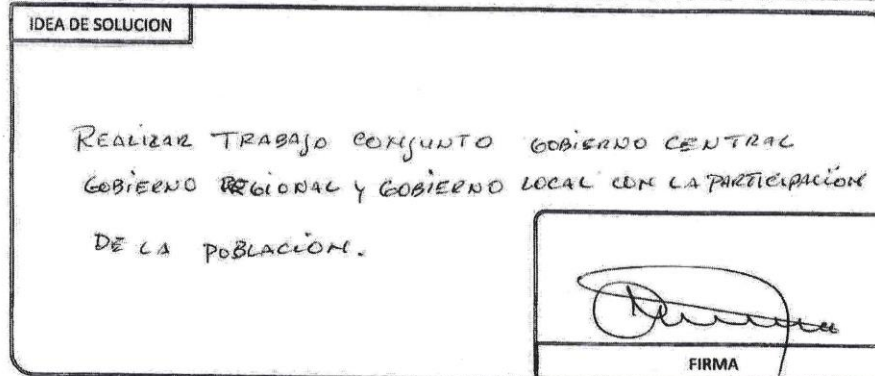 IDEA DE SOLUCION
REALIZAR TRABAJO CONJUNTO GOBIERNO CENTRAL
GOBIERNO REGIONAL Y GOBIERNO LOCAL CON LA PARTICIPACIÓN
DE LA POBLACIÓN.
FIRMA